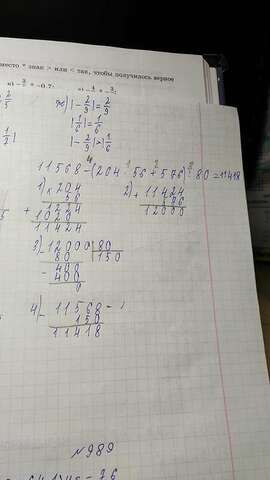 место * знак > или < так, чтобы получилось верное
ж) |-2/9| = 2/9
|1/6| = 1/6
|-2/9| > |1/6|
11568-(204·56+576):80=11418
1) × 204
56
1224
+ 1020
11424
2) + 11424
576
12000
3) 12000 | 80
80 | 150
- 400
400
0
4) - 11568
150
11418
№989